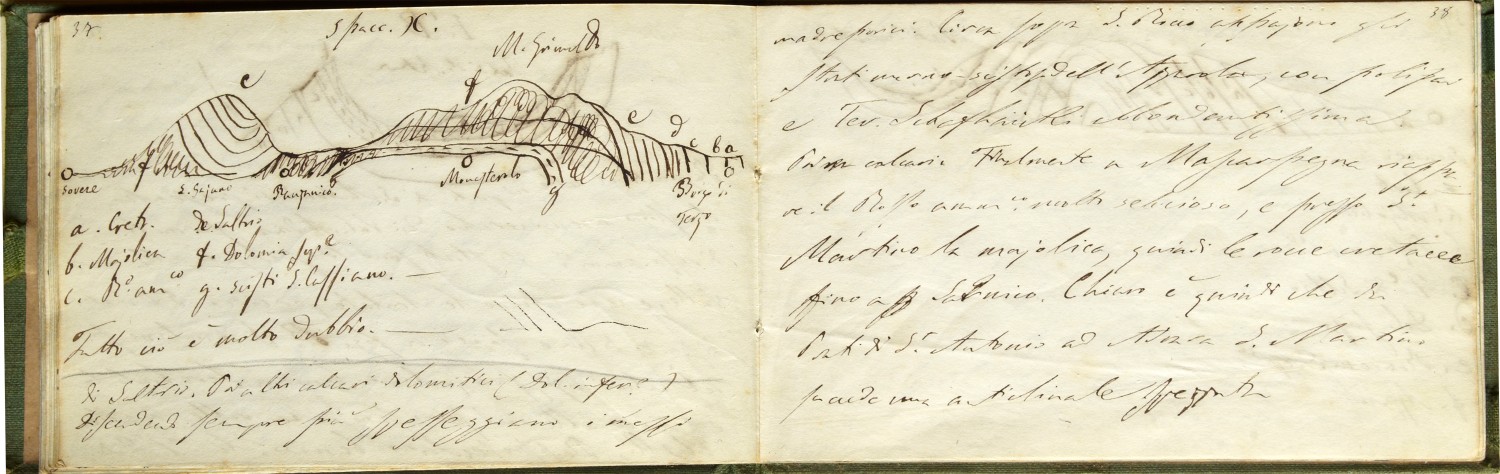 37.
Spacc. X.
M. Grimoldo
e
f
e
d
c
b a
Sovere
f
S. Gejano
Ranzanico
Monesterolo
g
Borgo di
Terzo
a. Cret. d. Saltrio
b. Majolica f. Dolomia sup.e
c. R.o am.co g. scisti S. Cassiano. —
Tutto ciò è molto dubbio. —
di Saltrio. Poi altri calcari dolomitici (Dol. infer.e)
discendendo sempre più spesseggiano i massi
38
madreporici. Circa sopra S. Rocco appajono gli
scisti dell' Azzarola, con polipai
e Ter. Schafhäutli abbondantissima
Poi calcari Finalmente a riappa
re il Rosso amm.co molto selcioso, e presso S.
Martino la majolica, quindi le rocce cretacee
fino a Sarnico. Chiaro è quindi che da
Ponti di S. Antonio ad S. Martino
una anticlinale spezzata